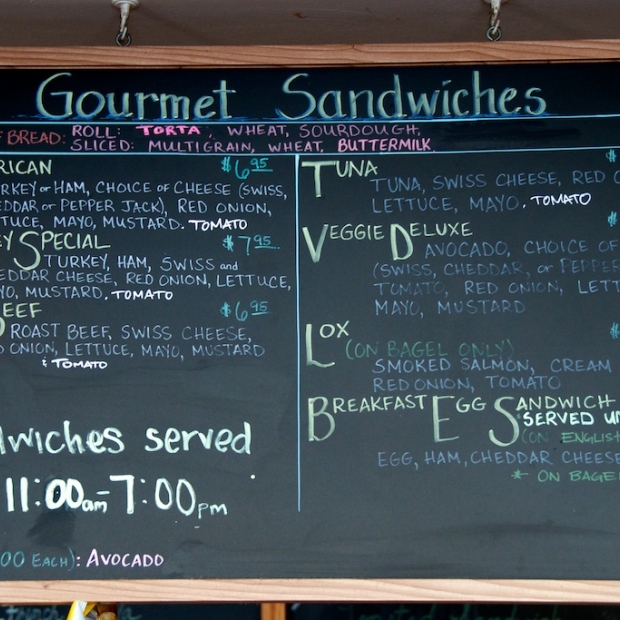 Gourmet Sandwiches
BREAD: ROLL: TORTA, WHEAT, SOURDOUGH,
SLICED: MULTIGRAIN, WHEAT, BUTTERMILK
RICAN $6.95
RKEY or HAM, CHOICE OF CHEESE (SWISS,
DDAR or PEPPER JACK), RED ONION,
TUCE, MAYO, MUSTARD. TOMATO
EY SPECIAL $7.95
TURKEY, HAM, SWISS and
EDDAR CHEESE, RED ONION, LETTUCE,
YO, MUSTARD, TOMATO
EEF $6.95
ROAST BEEF, SWISS CHEESE,
D ONION, LETTUCE, MAYO, MUSTARD
& TOMATO
dwiches served
11:00am-7:00pm
00 EACH): AVOCADO
TUNA $
TUNA, SWISS CHEESE, RED O
LETTUCE, MAYO, TOMATO
VEGGIE DELUXE $
AVOCADO, CHOICE OF
(SWISS, CHEDDAR, or PEPPER
TOMATO, RED ONION, LETT
MAYO, MUSTARD
LOX $
(ON BAGEL ONLY)
SMOKED SALMON, CREAM
RED ONION, TOMATO
BREAKFAST EGG SANDWICH
SERVED UN
(ON ENGLIS
EGG, HAM, CHEDDAR CHEESE
* ON BAGE